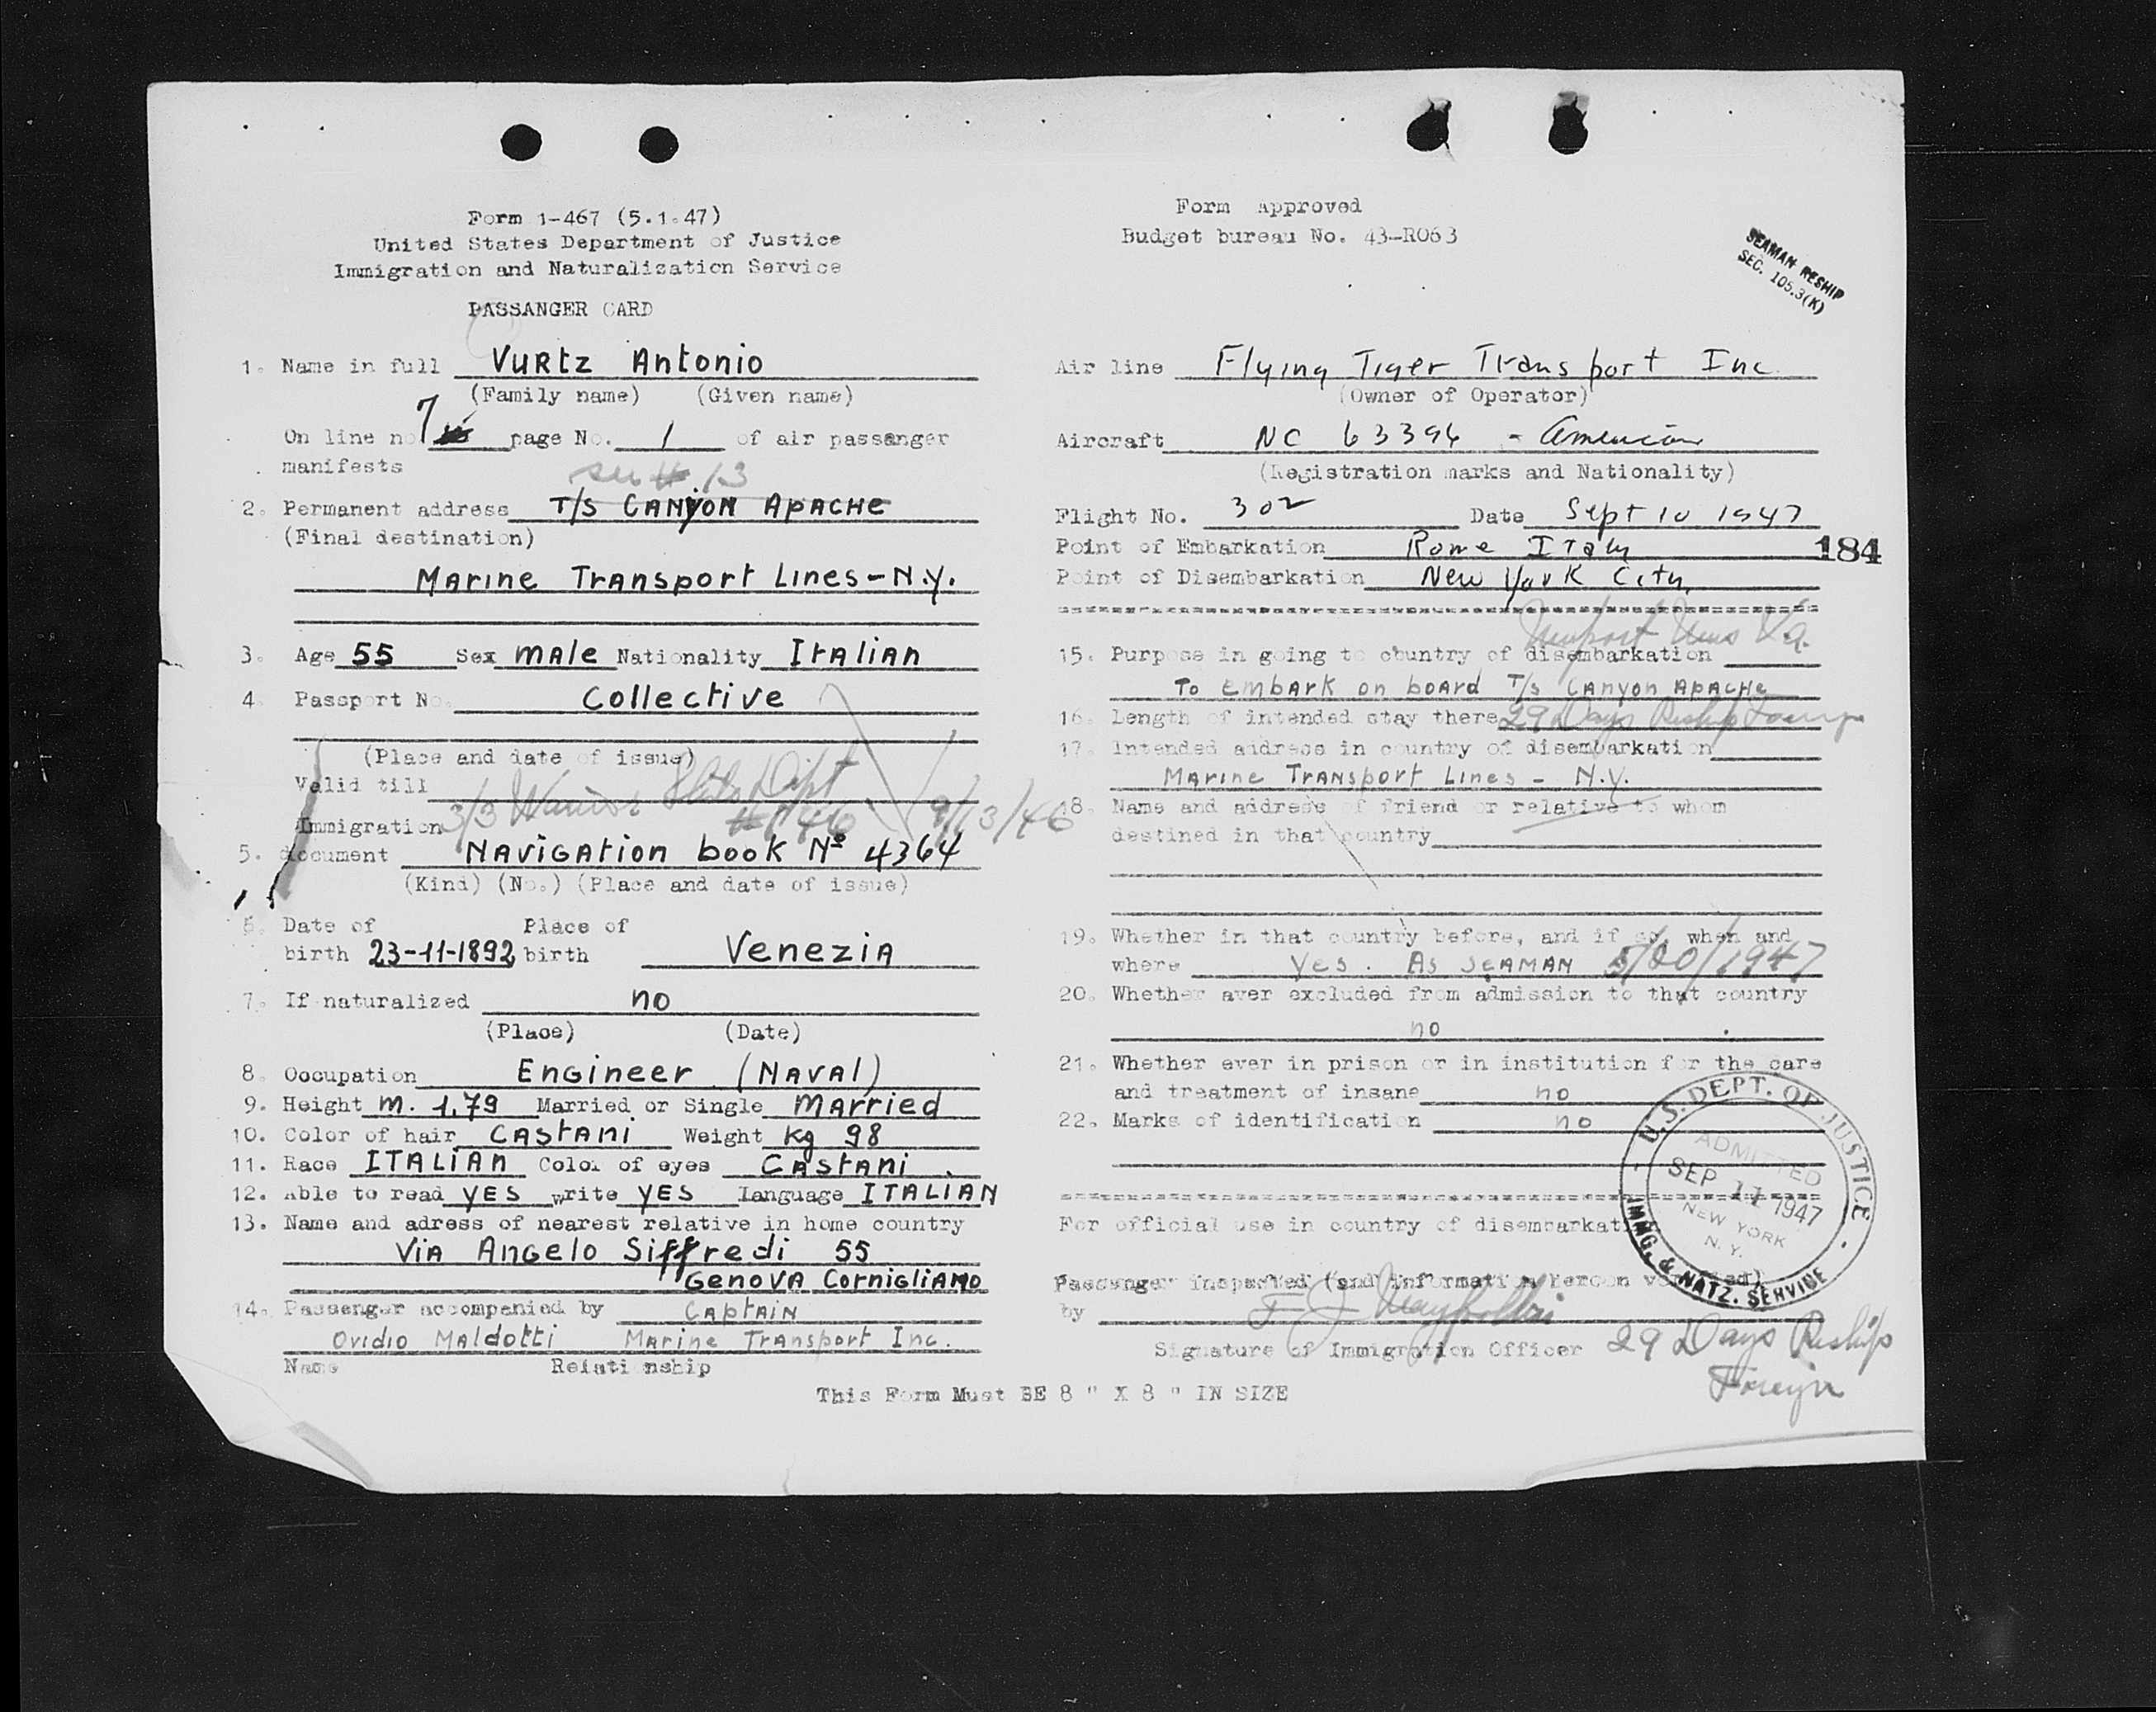 Form 1-467 (5.1.47)
United States Department of Justice
Immigration and Naturalization Service
PASSANGER CARD
Form Approved
Budget bureau No. 43-R063
SEAMAN RESHIP
SEC. 105.3(K)
1. Name in full VURtz Antonio
(Family name) (Given name)
On line no 7 page No. 1 of air passanger
manifests
13
2. Permanent address T/S CANyON APACHE
(Final destination)
MARINE TRANSPORT LINES-N.Y.
3. Age 55 Sex MAle Nationality ItAliAn
4. Passport No. Collective
(Place and date of issue)
Valid till
Immigration 9/13/46
5. document NAViGAtion book Nº 4364
(Kind) (No.) (Place and date of issue)
6. Date of Place of
birth 23-11-1892 birth VeneziA
7. If naturalized no
(Place) (Date)
8. Occupation ENGineer (NAVAl)
9. Height M. 1,79 Married or Single MArried
10. Color of hair CAStAni Weight Kg 98
11. Race ITALiAN Color of eyes CAStAni.
12. Able to read YES write YES Language ITALIAN
13. Name and adress of nearest relative in home country
ViA Angelo Siffredi 55
GenoVA CornigliANO
14. Passenger accompenied by CAPtAiN
Ovidio Maldotti Marine Transport Inc.
Name Relationship
Air line Flying Tiger Transport Inc.
(Owner of Operator)
Aircraft NC 63394 - American
(Registration marks and Nationality)
Flight No. 302 Date Sept 10 1947
Point of Embarkation Rome ITaly 184
Point of Disembarkation New York City
Newport News Va.
15. Purpose in going to country of disembarkation
To EMbARK on boARD T/s CAnyon APACHe
16. Length of intended stay there 29 Days Reship Foreign
17. Intended address in country of disembarkation
MARINE TRANSPORT LINES - N.Y.
18. Name and address of friend or relative to whom
destined in that country
19. Whether in that country before, and if so, when and
where Yes. As SEAMAN 5/20/1947
20. Whether aver excluded from admission to that country
no
21. Whether ever in prison or in institution for the care
and treatment of insane no
22. Marks of identification no
U.S. DEPT. OF JUSTICE
ADMITTED
SEP 11 1947
NEW YORK
N. Y.
IMMG. & NATZ. SERVICE
For official use in country of disembarkat
Passenger inspected (and information hereon verified)
by
Signature of Immigration Officer 29 Days Reship
Foreign
This Form Must BE 8 " X 8 " IN SIZE